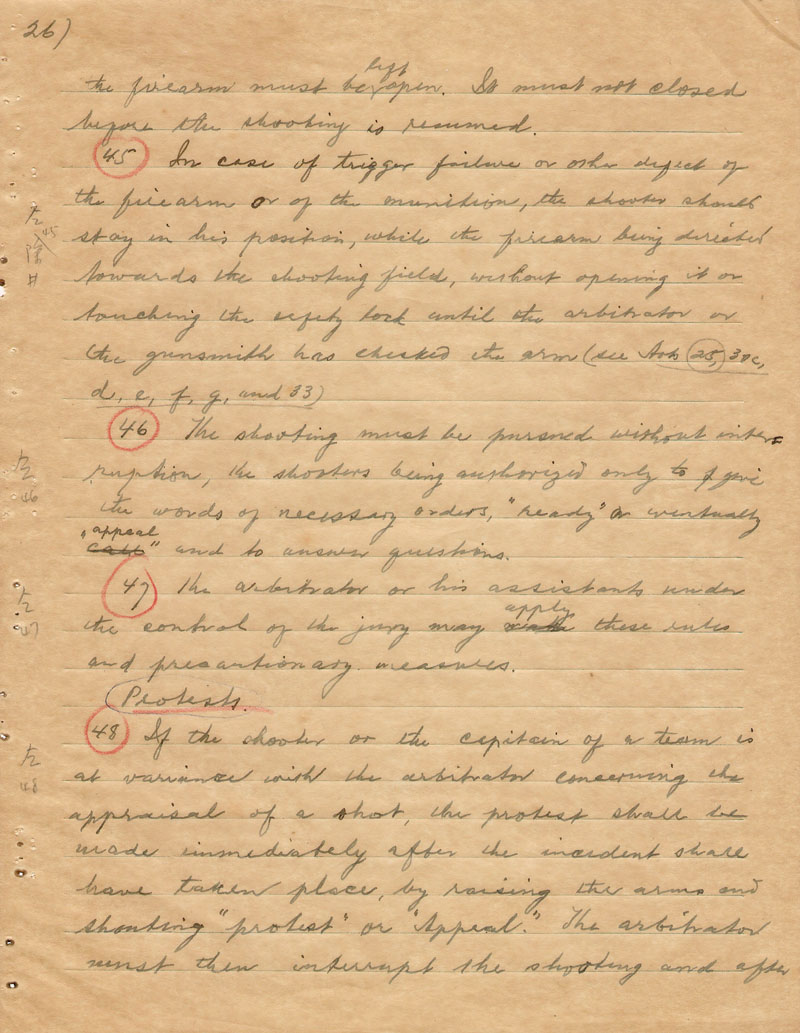 26)
the firearm must be left open. It must not closed
before the shooting is resumed.
45 In case of trigger failure or other defect of
the firearm or of the munition, the shooter should
stay in his position, while the firearm being directed
towards the shooting field, without opening it or
touching the safety lock until the arbitrator or
the gunsmith has checked the arm (see Art. 25, 30c,
d, e, f, g, and 33)
46 The shooting must be pursued without inter=
ruption, the shooters being authorized only to give
the words of necessary orders, "ready" or eventually
"appeal" and to answer questions.
47 The arbitrator or his assistants under
the control of the jury may apply these rules
and precautionary measures.
Protests.
48 If the shooter or the capitain of a team is
at variance with the arbitrator concerning the
appraisal of a shot, the protest shall be
made immediately after the incident shall
have taken place, by raising the arms and
shouting "protest" or "Appeal." The arbitrator
must then interrupt the shooting and after
45
46
47
48